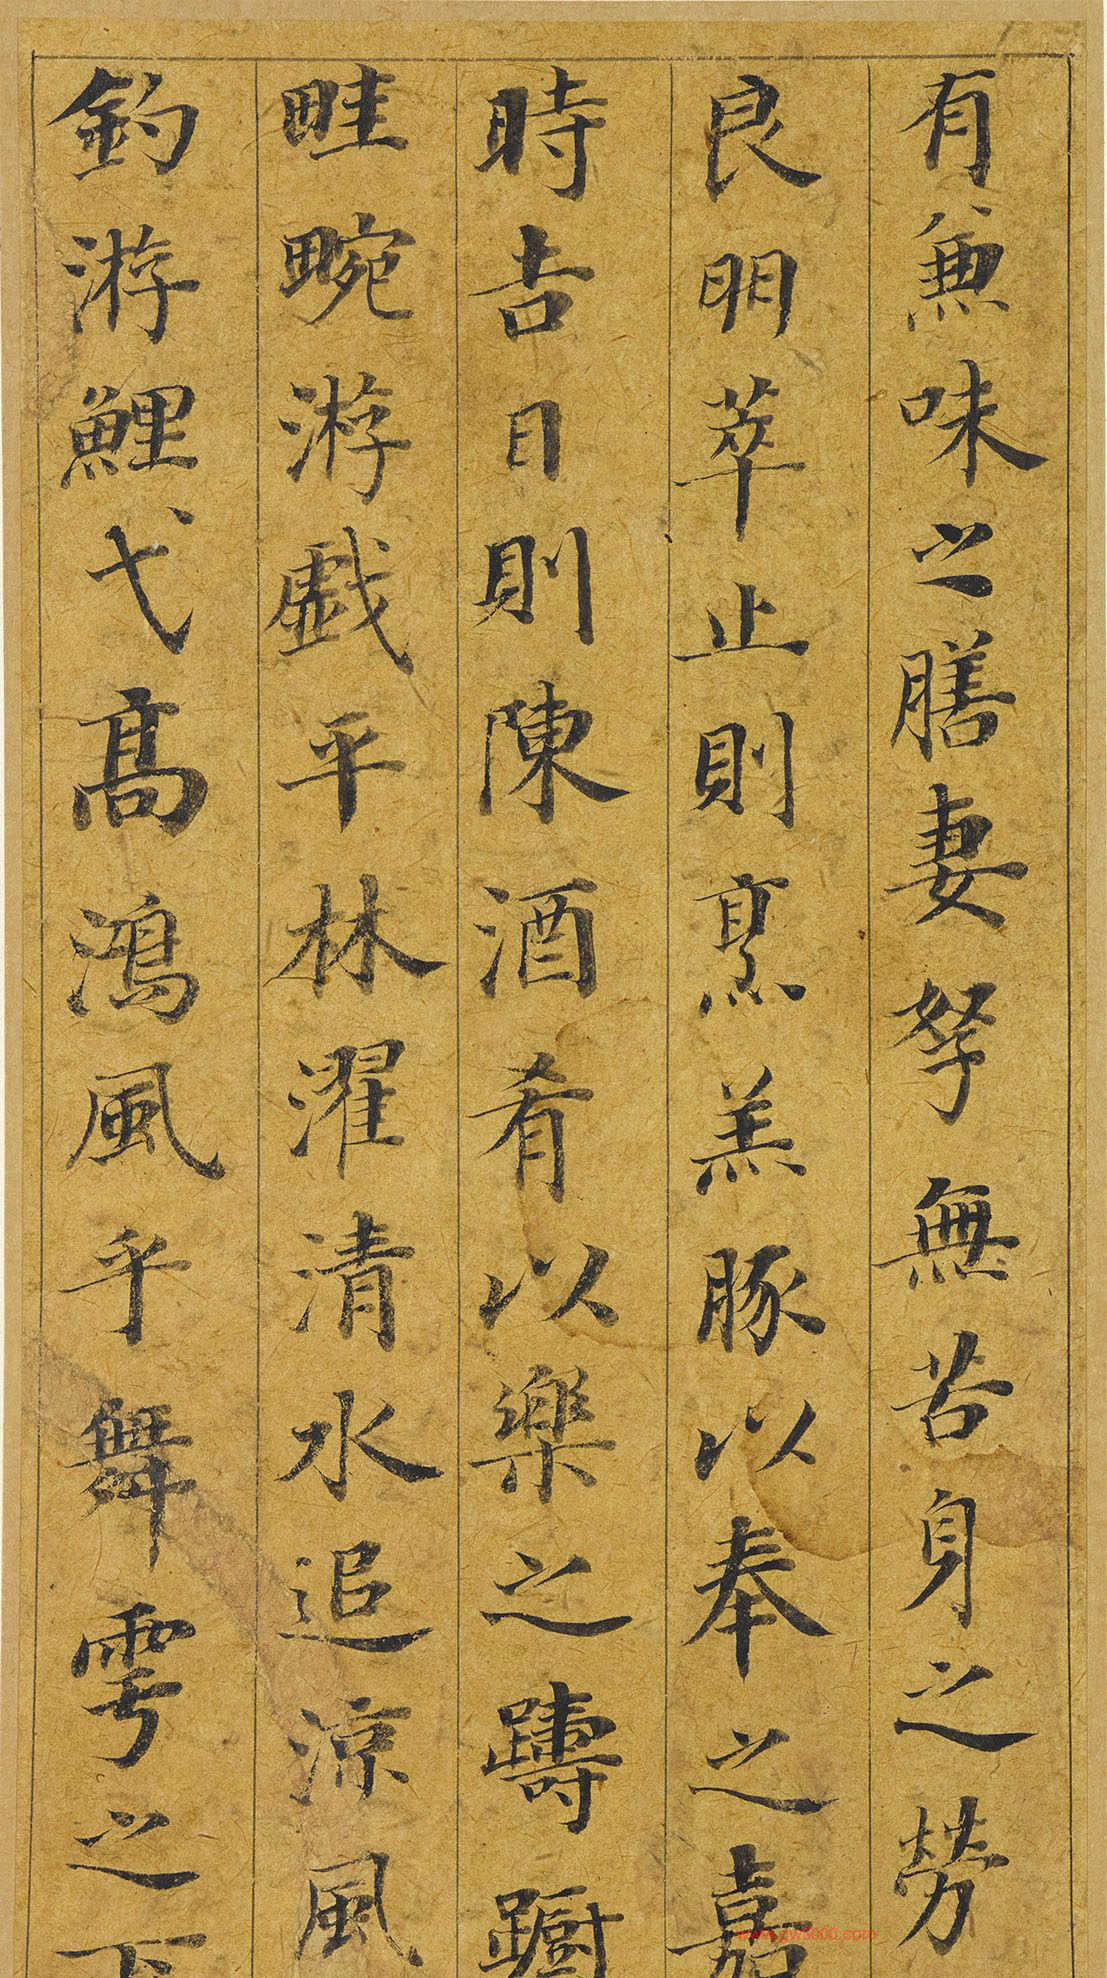 有兼味之膳妻孥無苦身之勞
良朋萃止則烹羔豚以奉之嘉
時吉日則陳酒肴以樂之躊躕
畦畹游戲平林濯清水追涼風
釣游鯉弋高鴻風乎舞雩之下
www.gw5000.com